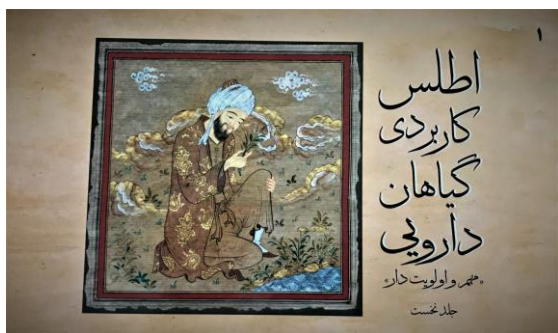 ۱
اطلس
کاربردی
گیاهان
دارویی
«مهم و اولویت‌دار»
جلد نخست